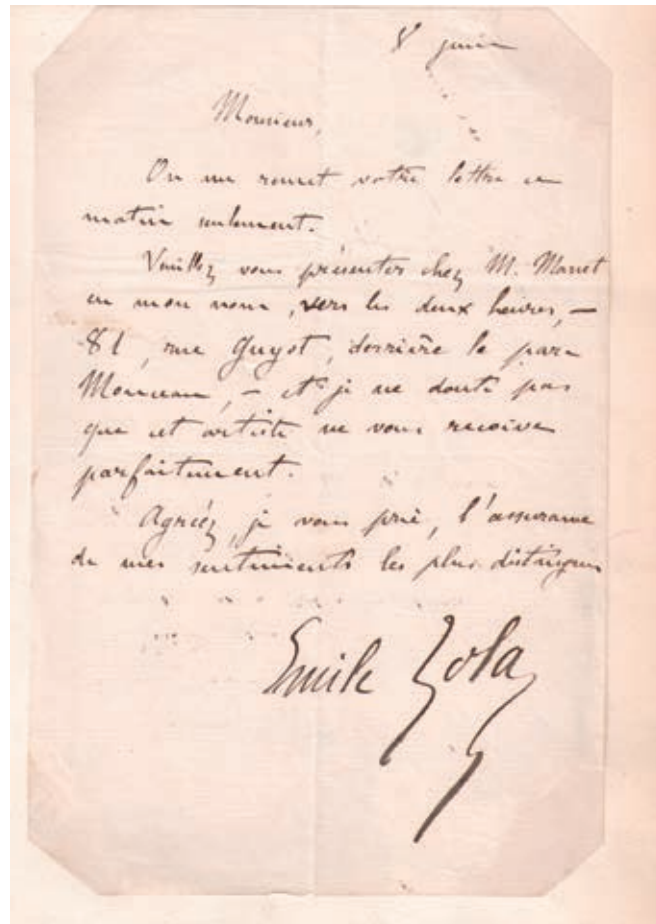 8 juin
Monsieur,
On me remet votre lettre ce
matin seulement.
Veuillez vous présenter chez M. Manet
en mon nom, vers les deux heures, —
81, rue Guyot, derrière le parc
Monceau, — et je ne doute pas
que cet artiste ne vous reçoive
parfaitement.
Agréez, je vous prie, l'assurance
de mes sentiments les plus distingués
Emile Zola